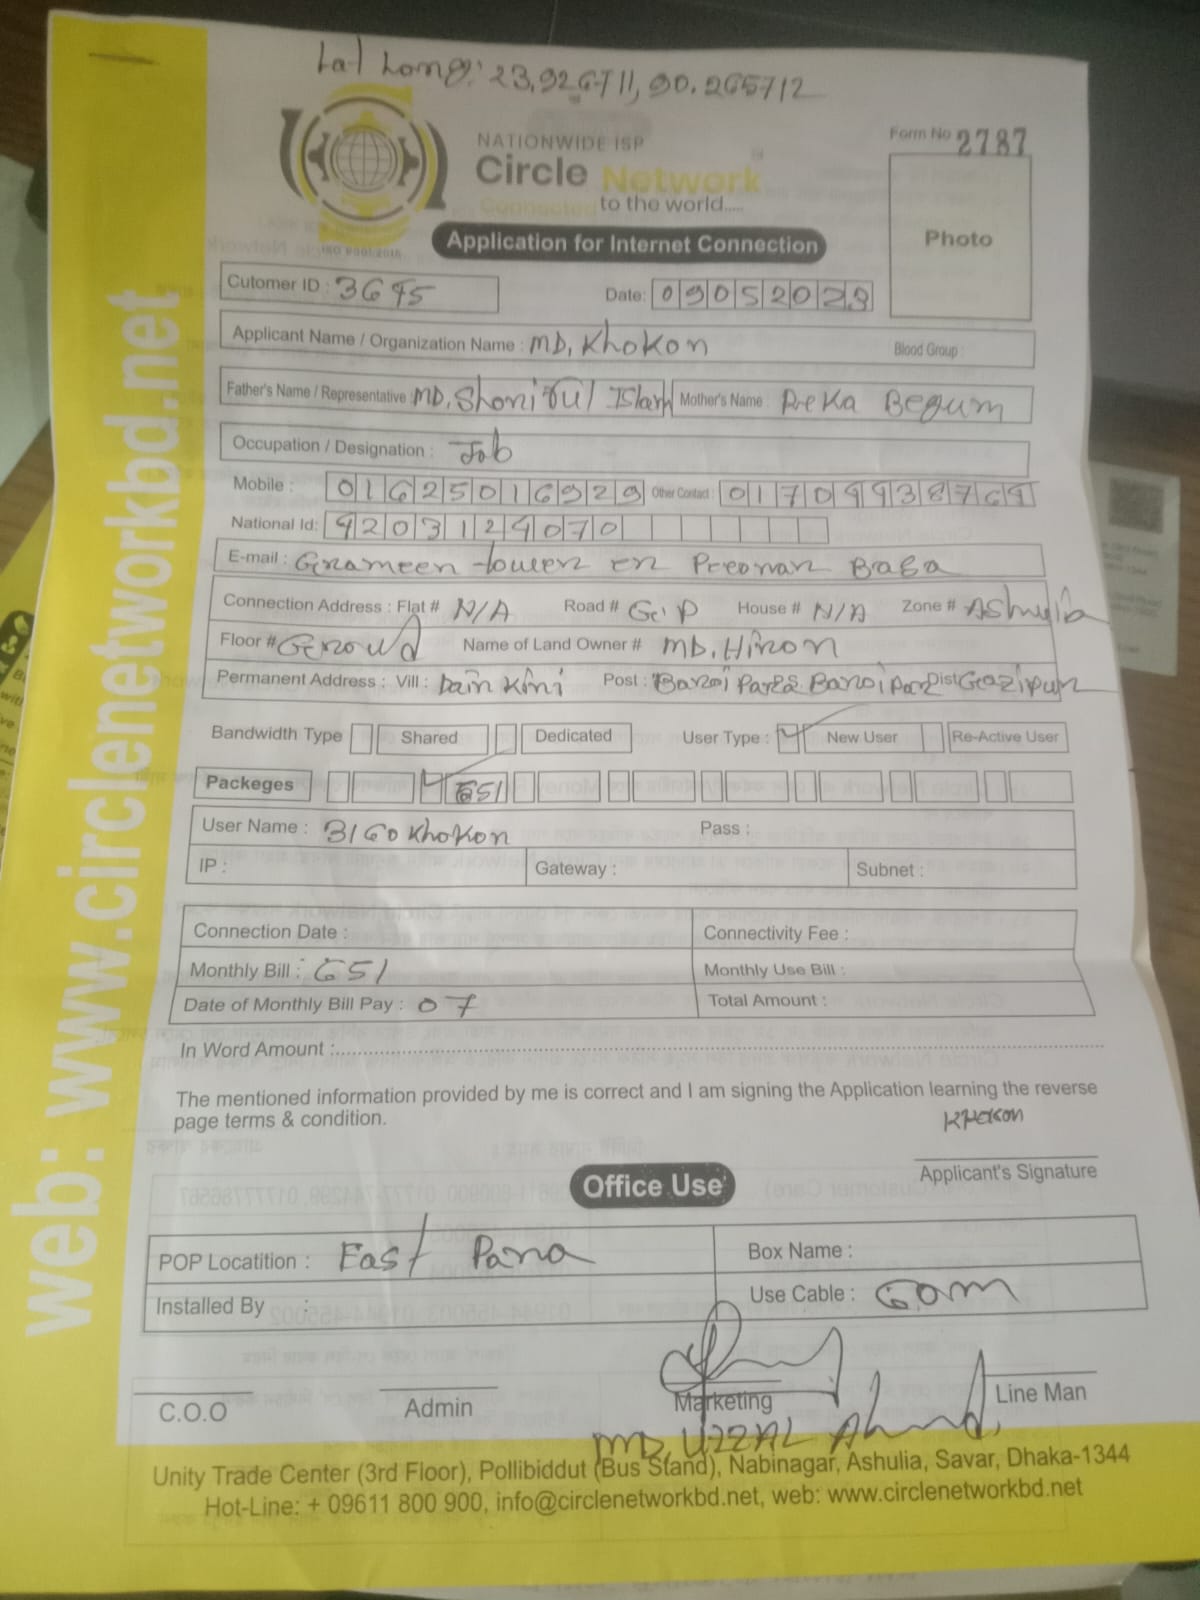 Lat Long: 23.926711, 90.265712
NATIONWIDE ISP
Form No 2787
Circle Network
Connected to the world.....
ISO 9001:2015
Photo
Application for Internet Connection
Cutomer ID : 3645
Date: 09052023
Applicant Name / Organization Name : MD, Khokon
Blood Group :
Father's Name / Representative : MD, Islam Mother's Name : Begum
Occupation / Designation : Job
Mobile : 01625016929 Other Contact : 01709938764
National Id: 4203124070
E-mail : Grameen tower
Connection Address : Flat # N/A Road # House # N/A Zone # Ashulia
Floor # Name of Land Owner # MD, Hiron
Permanent Address : Vill : Post : Dist: Gazipur
Bandwidth Type Shared Dedicated User Type : New User Re-Active User
Packeges 651
User Name : 3160Khokon Pass :
IP : Gateway : Subnet :
Connection Date : Connectivity Fee :
Monthly Bill : 651 Monthly Use Bill :
Date of Monthly Bill Pay : 07 Total Amount :
In Word Amount :
The mentioned information provided by me is correct and I am signing the Application learning the reverse
page terms & condition.
Khokon
Applicant's Signature
Office Use
POP Locatition : East Para Box Name :
Installed By : Use Cable : 60m
C.O.O Admin Marketing Line Man
MD. UZZAL Ahmed
Unity Trade Center (3rd Floor), Pollibiddut (Bus Stand), Nabinagar, Ashulia, Savar, Dhaka-1344
Hot-Line: + 09611 800 900, info@circlenetworkbd.net, web: www.circlenetworkbd.net
web: www.circlenetworkbd.net